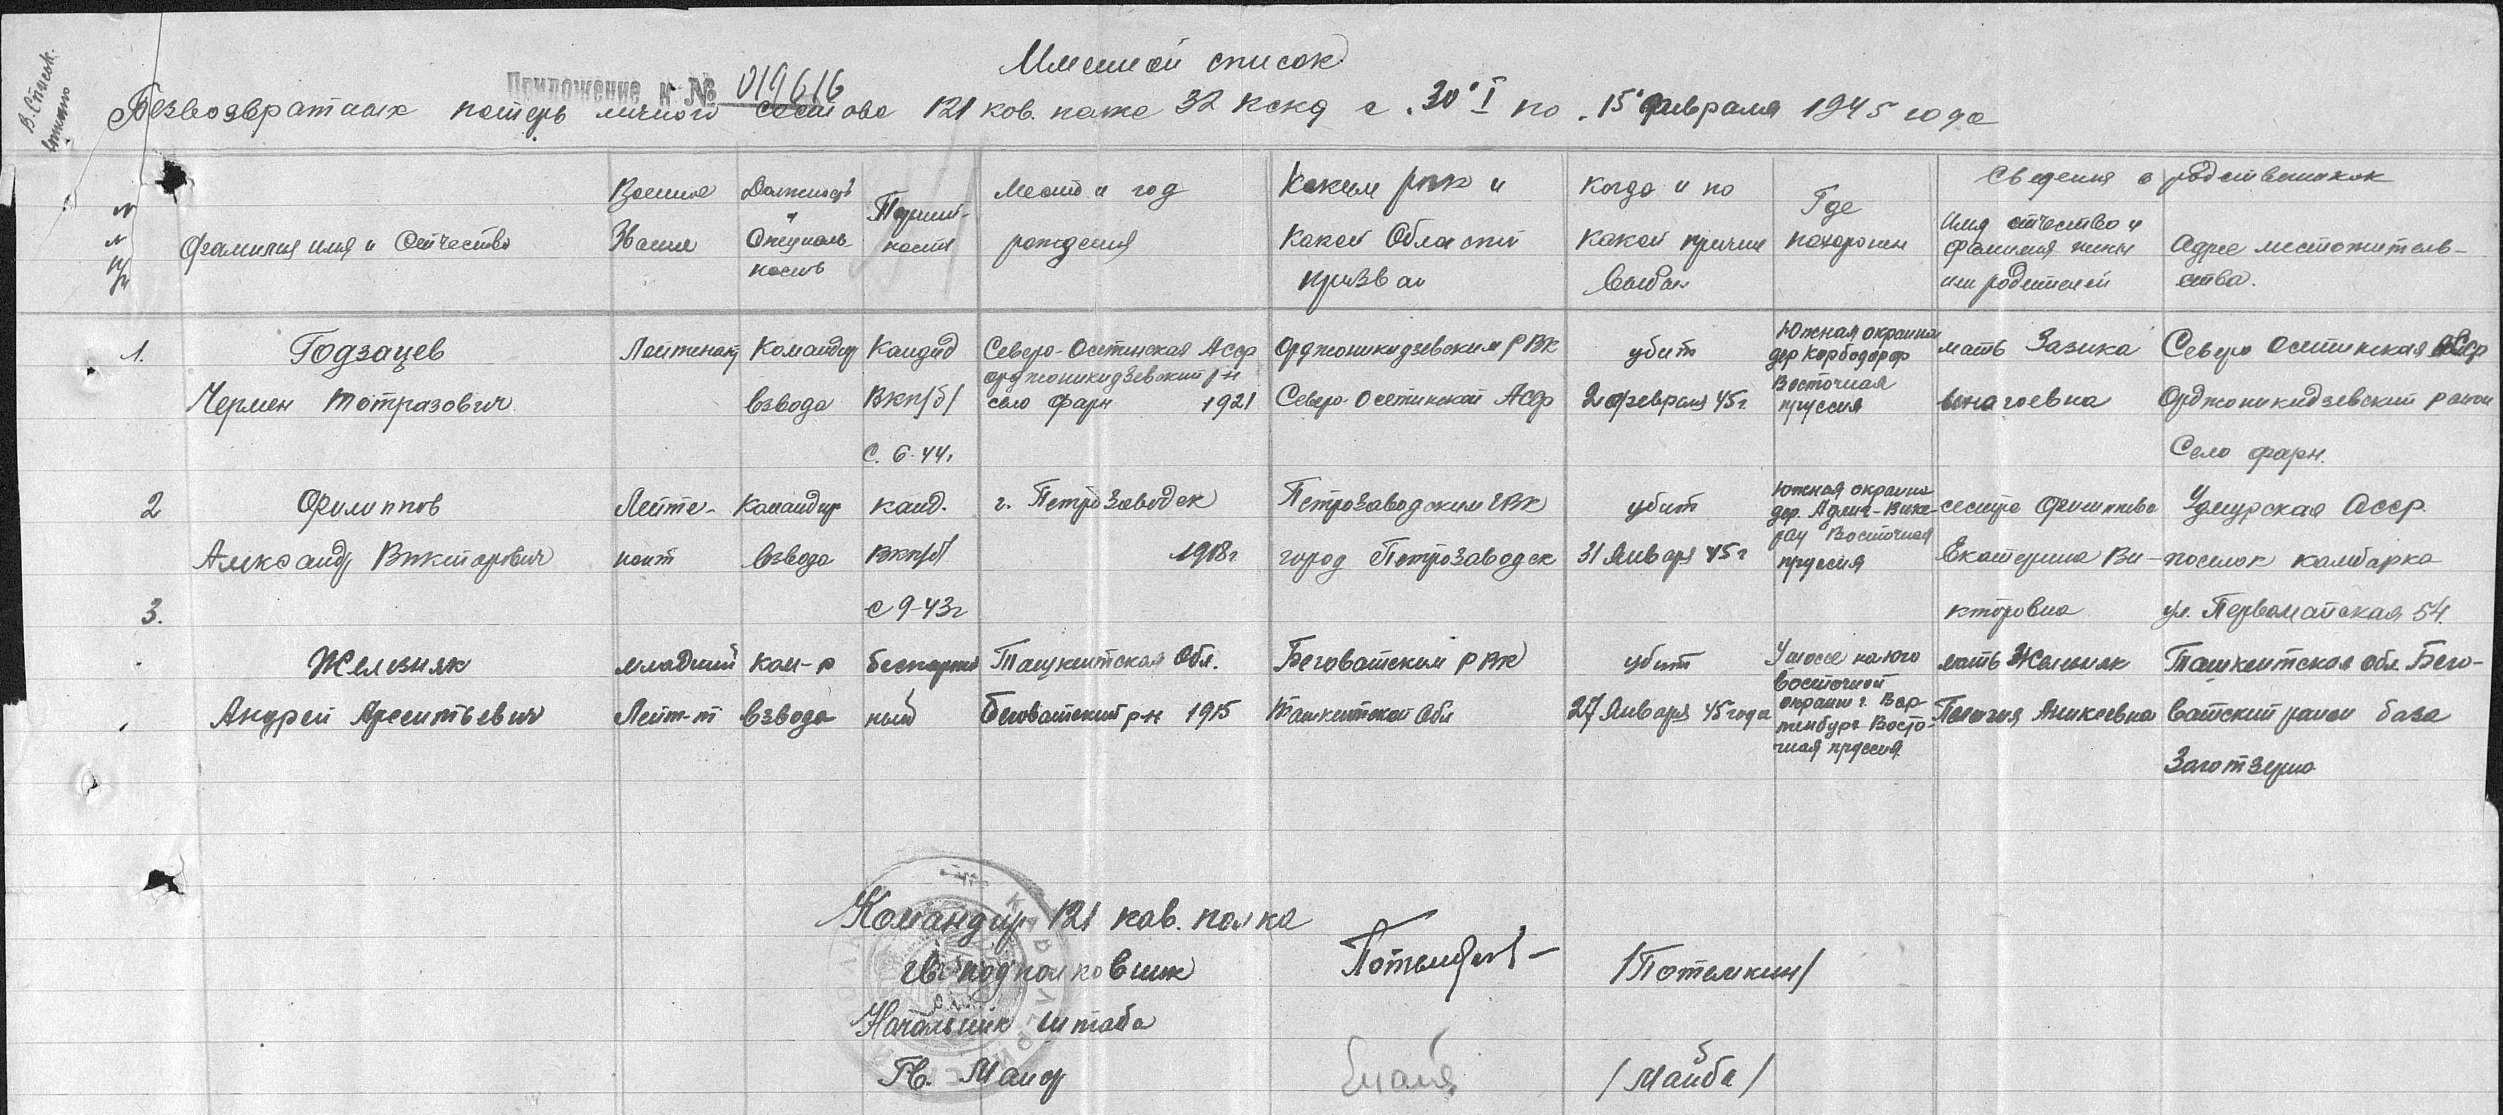 В. Список
Именной список
Приложение к № 019616
Безвозвратных потерь личного состава 121 кав. полка 32 кскд с „30" I по „15" февраля 1945 года
№ № пп
Фамилия имя и Отчество
Военное Звание
Должность и Специальность
Партийность
Место и год рождения
Каким рвк и Какой Области призван
Когда и по какой причине выбыл
Где похоронен
Сведения о родственниках
Имя отчество и фамилия жены или родителей
Адрес местожительства.
1. Годзацев Лейтенант Командир Кандид Северо-Осетинская Асср Орджоникидзевским РВК убит Южная окраина мать Зазика Северо осетинская Асср
орджоникидзевский р-н дер
Чермен Тотразович взвода ВКП/б/ село фарн 1921 Северо осетинской Асср 2 февраля 45г Восточная пруссия Орджоникидзевский район
с. 6-44г Село фарн.
2 Филиппов Лейте- командир канд. г. Петрозаводск Петрозаводским ГВК убит Южная окраина сестра Филиппова Удмурская Асср.
дер.
Александр Викторович нант взвода ВКП/б/ 1918г город Петрозаводск 31 Января 45г Восточная пруссия Екатерина Ви- поселок камбарка
3. с 9-43г кторовна ул. Первомайская 54.
Железняк младший ком-р беспартий Ташкентская обл. Беговатским РВК убит У шоссе на юго мать Железняк Ташкентская обл. Бего-
восточной
Андрей Арсентьевич Лейт-т взвода ный Беговатский р-н 1915 Ташкентской обл 27 Января 45 года окраин г. Вар- Пелагия Аникеевна ватский район база
тенбург Восто-
чная пруссия.
Заготзерно
Командир 121 кав. полка
гв. подполковник /Потемкин/
Начальник штаба
Гв. Майор /Майба/